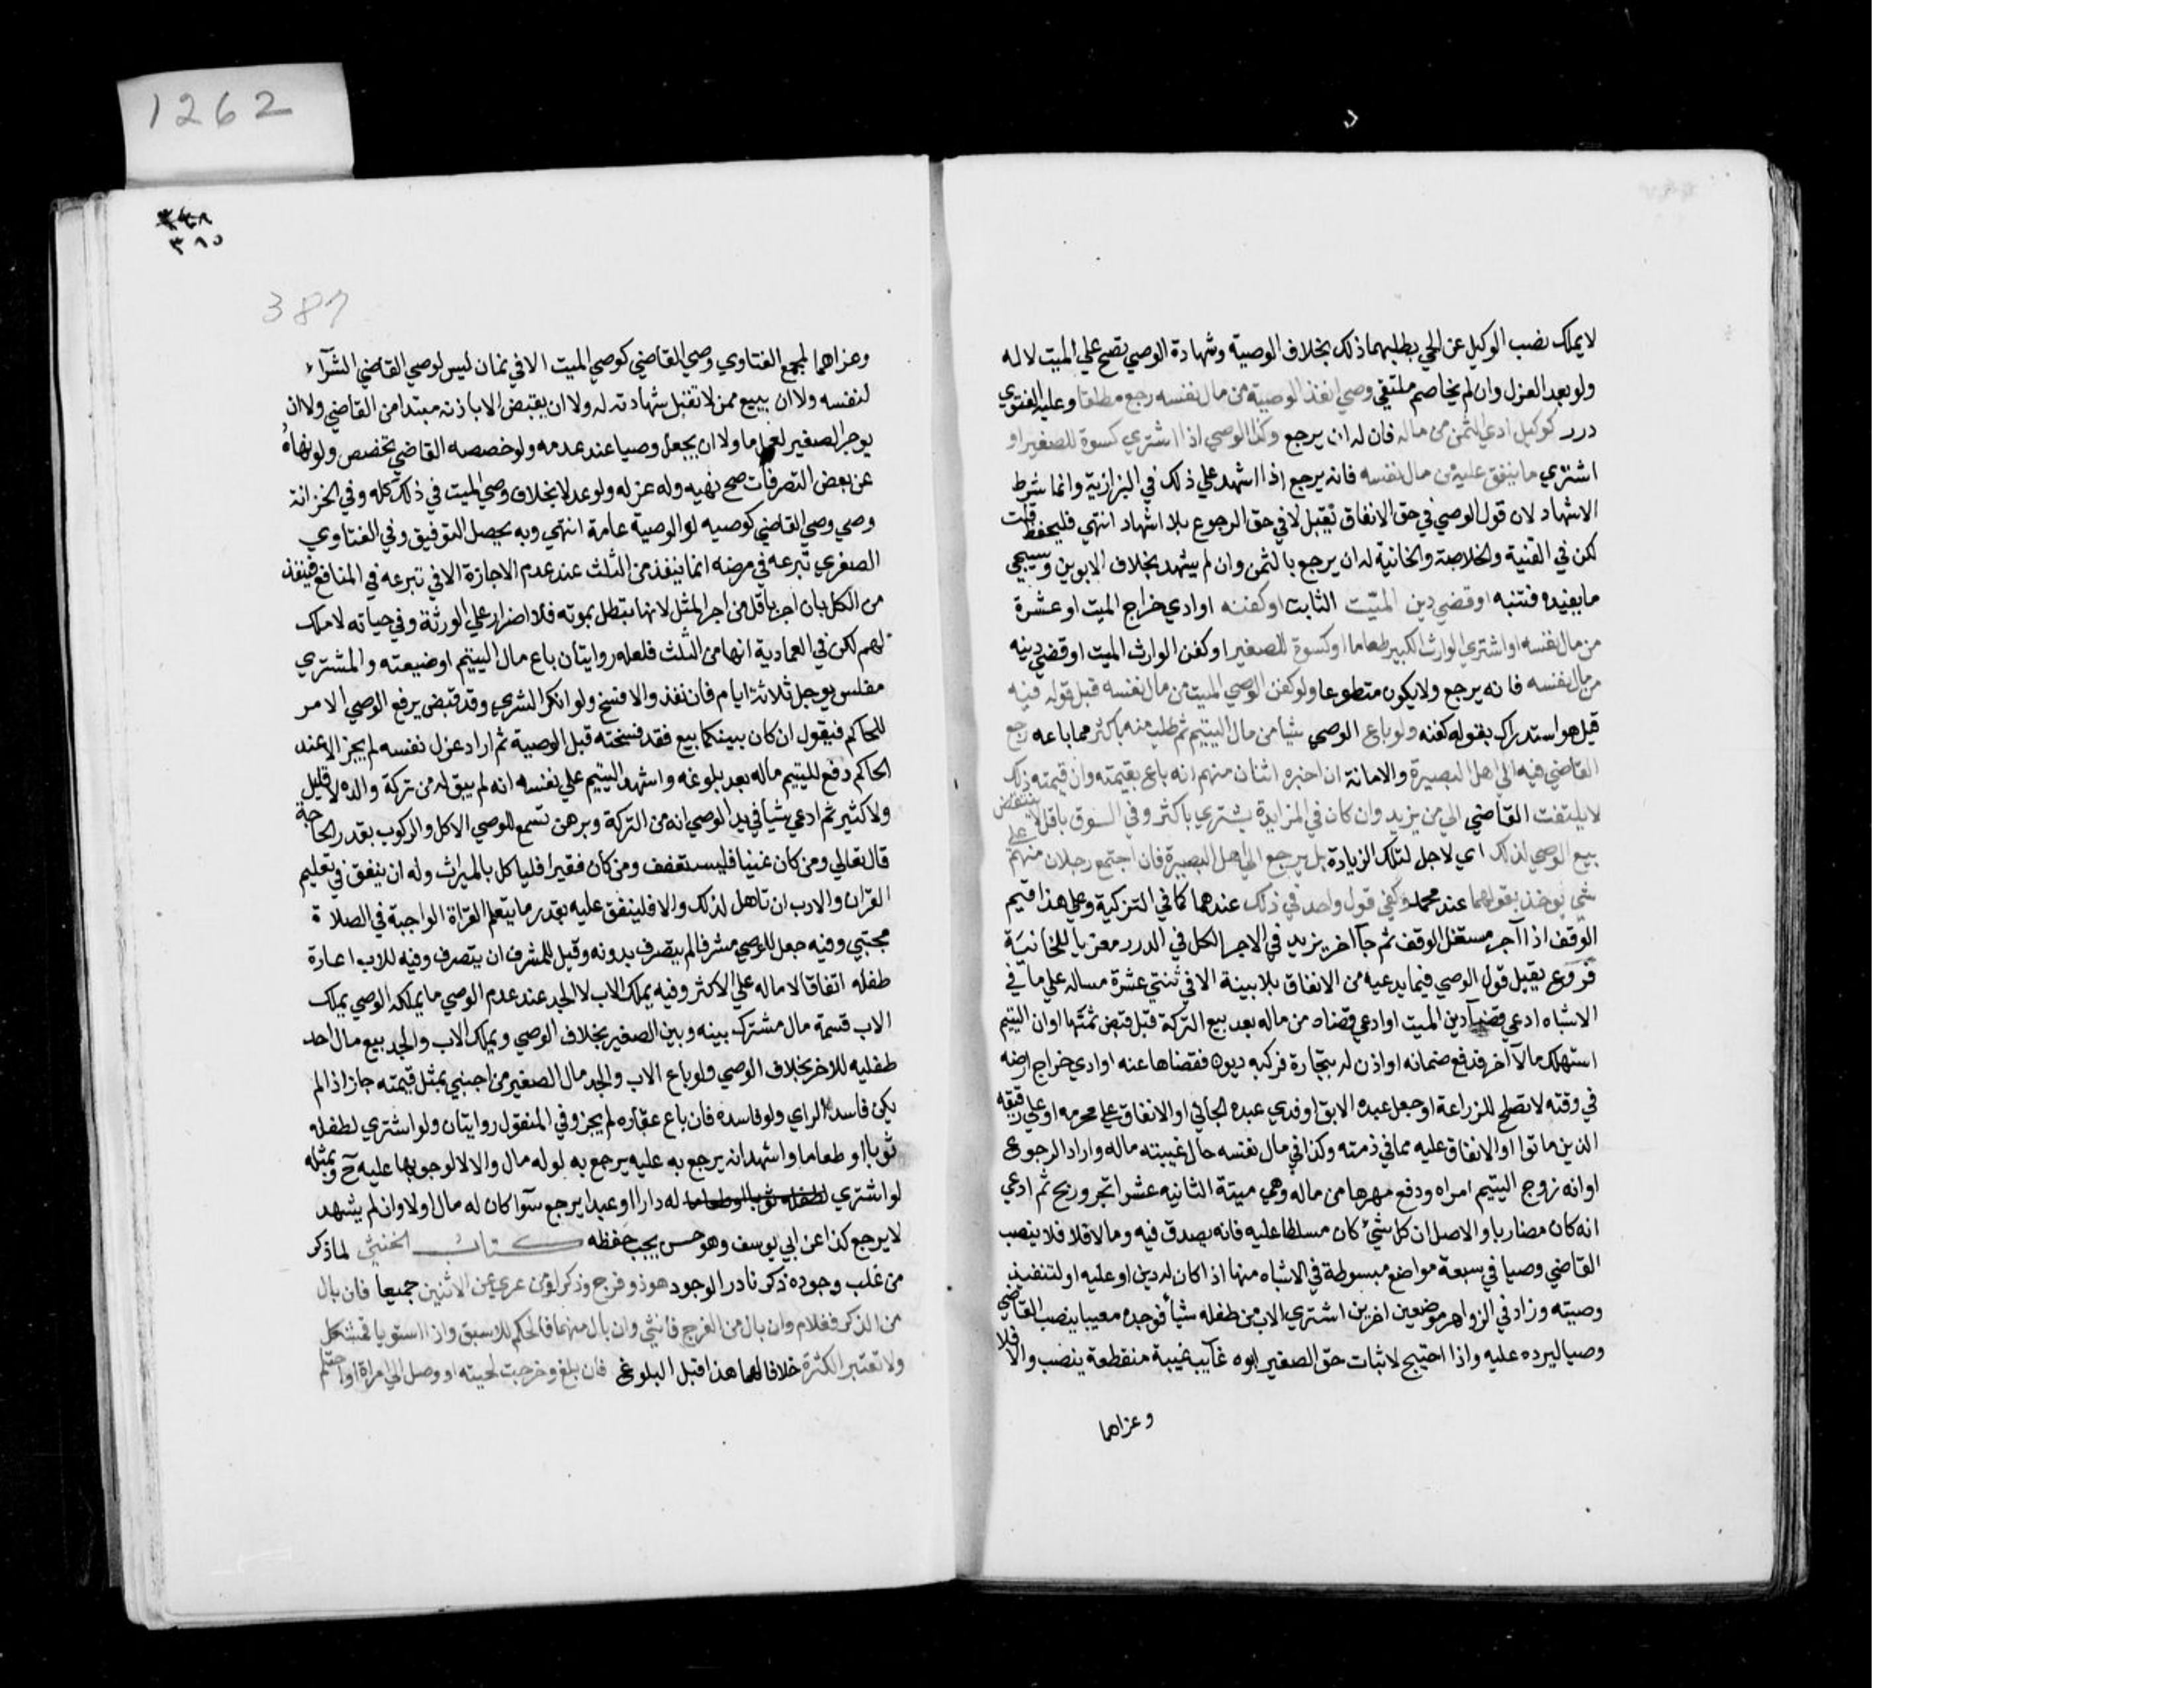 لا يملك نصب الوكيل عن الحي بطلبهما ذلك بخلاف الوصية وشهادة الوصي تصح علي الميت لا له
ولو بعد العزل وان لم يخاصم ملتقي وصي انفذ الوصية من مال نفسه رجع مطلقا وعليه الفتوي
درر كوكيل ادي الثمن من ماله فان له ان يرجع وكذا الوصي اذا اشتري كسوة للصغير او
اشتري ما ينفق عليه من مال نفسه فانه يرجع اذا اشهد علي ذلك في البزازية وانما شرط
الاشهاد لان قول الوصي في حق الانفاق يقبل لا في حق الرجوع بلا اشهاد انتهي فليحفظ قلت
لكن في القنية والخلاصة والخانية له ان يرجع بالثمن وان لم يشهد بخلاف الابوين وسيجي
ما يفيده فتنبه او قضي دين الميت الثابت او كفنه او ادي خراج الميت او عشرة
من مال نفسه او اشتري الوارث الكبير طعاما او كسوة للصغير او كفن الوارث الميت او قضي دينه
من مال نفسه فانه يرجع ولا يكون متطوعا ولو كفن الوصي الميت من مال نفسه قبل قوله فيه
قيل هو استدراك بقوله كفنه ولو باع الوصي شيا من مال اليتيم ثم طلب منه باكثر مما باعه رجع
القاضي فيه الي اهل البصيرة والامانة ان اخبره اثنان منهم انه باع بقيمته وان قيمته ذلك
لا يلتفت القاضي الي من يزيد وان كان في المزايدة يشتري باكثر وفي السوق باقل لا ينتقض
بيع الوصي لذلك اي لاجل لتلك الزيادة بل يرجع الي اهل البصيرة فان اجتمع رجلان منهم علي
شي يوخذ بقولهما عند محمد وكفي قول واحد في ذلك عندهما كما في التزكية وعلي هذا قيم
الوقف اذا آجر مستغل الوقف ثم جآ اخر يزيد في الاجر الكل في الدرر معزيا للخانية
فروع يقبل قول الوصي فيما يدعيه من الانفاق بلا بينة الا في ثنتي عشرة مساله علي ما في
الاشباه ادعي قضآ دين الميت او ادعي قضاه من ماله بعد بيع التركة قبل قبض ثمنها او ان اليتيم
استهلك مالا آخر فدفع ضمانه او اذن له بتجارة فركبه ديون فقضاها عنه او ادي خراج ارضه
في وقته لا تصلح للزراعة او جعل عبده الابق او فدي عبده الجاني او الانفاق علي محرمه او علي رقيقه
الذين ماتوا او الانفاق عليه مما في ذمته وكذا في مال نفسه حال غيبته ماله واراد الرجوع
او انه زوج اليتيم امراه ودفع مهرها من ماله وهي ميتة الثانيه عشر اتجر وربح ثم ادعي
انه كان مضاربا والاصل ان كل شيء كان مسلطا عليه فانه يصدق فيه وما لا فلا فلا ينصب
القاضي وصيا في سبعة مواضع مبسوطة في الاشباه منها اذا كان له دين او عليه او لتنفيذ
وصيته وزاد في الزواهر موضعين اخرين اشتري الاب من طفله شيأ فوجده معيبا ينصب القاضي
وصيا ليرده عليه واذا احتيج لاثبات حق الصغير ابوه غآيب غيبة منقطعة ينصب والا فلا
وعزاهما
1262
٣٤٨
٣٨٥
387
وعزاهما لمجمع الفتاوي وصي القاضي كوصي الميت الا في ثمان ليس لوصي القاضي الشرآء
لنفسه ولا ان يبيع ممن لا تقبل شهادته له ولا ان يقبض الا باذنه مبتدا من القاضي ولا ان
يوجر الصغير لعمل ما ولا ان يجعل وصيا عند عدمه ولو خصصه القاضي تخصص ولو نهاه
عن بعض التصرفات صح نهيه وله عزله ولو عدلا بخلاف وصي الميت في ذلك كله وفي الخزانة
وصي وصي القاضي كوصيه لو الوصية عامة انتهي وبه يحصل التوفيق وفي الفتاوي
الصغري تبرعه في مرضه انما ينفذ من الثلث عند عدم الاجازة الا في تبرعه في المنافع فينفذ
من الكل بان اجر باقل من اجر المثل لانها تبطل بموته فلا اضرار علي الورثة وفي حياته لا ملك
لهم لكن في العمادية انها من الثلث فلعله روايتان باع مال اليتيم او ضيعته والمشتري
مفلس يوجل ثلاثة ايام فان نفذ والا فسخ ولو انكر الشري وقد قبض يرفع الوصي الامر
للحاكم فيقول ان كان بينكما بيع فقد فسخته قبل الوصية ثم اراد عزل نفسه لم يجز الا عند
الحاكم دفع لليتيم ماله بعد بلوغه واشهد اليتيم علي نفسه انه لم يبق له من تركة والده لا قليل
ولا كثير ثم ادعي شيأ في يد الوصي انه من التركة وبرهن تسمع للوصي الاكل والركوب بقدر الحاجة
قال تعالي ومن كان غنيا فليستعفف ومن كان فقيرا فلياكل بالميراث وله ان ينفق في تعليم
القران والادب ان تاهل لذلك والا فلينفق عليه بقدر ما يتعلم القراة الواجبة في الصلاة
مجتبي وفيه جعل للوصي مشرفا لم يتصرف بدونه وقيل للمشرف ان يتصرف وفيه للاب اعارة
طفله اتفاقا لا ماله علي الاكثر وفيه يملك الاب لا الجد عند عدم الوصي ما يملكه الوصي يملك
الاب قسمة مال مشترك بينه وبين الصغير بخلاف الوصي ويملك الاب والجد بيع مال احد
طفليه للاخر بخلاف الوصي ولو باع الاب والجد مال الصغير من اجنبي بمثل قيمته جاز اذا لم
يكن فاسد الراي ولو فاسده فان باع عقاره لم يجز وفي المنقول روايتان ولو اشتري لطفله
ثوبا او طعاما واشهد انه يرجع به عليه يرجع به لو له مال والا لا لوجوبهما عليه ح وبمثله
لو اشتري لطفله ثوبا او طعاما له دارا او عبدا يرجع سوآ كان له مال او لا وان لم يشهد
لا يرجع كذا عن ابي يوسف وهو حسن يجب حفظه كتاب الخنثي لما ذكر
من غلب وجوده ذكر نادر الوجود هو ذو فرج وذكر او من عري عن الاثنين جميعا فان بال
من الذكر فغلام وان بال من الفرج فانثي وان بال منهما فالحكم للاسبق واذا استويا فمشكل
ولا تعتبر الكثرة خلافا لهما هذا قبل البلوغ فان بلغ وخرجت لحيته او وصل الي امراة او احتلم